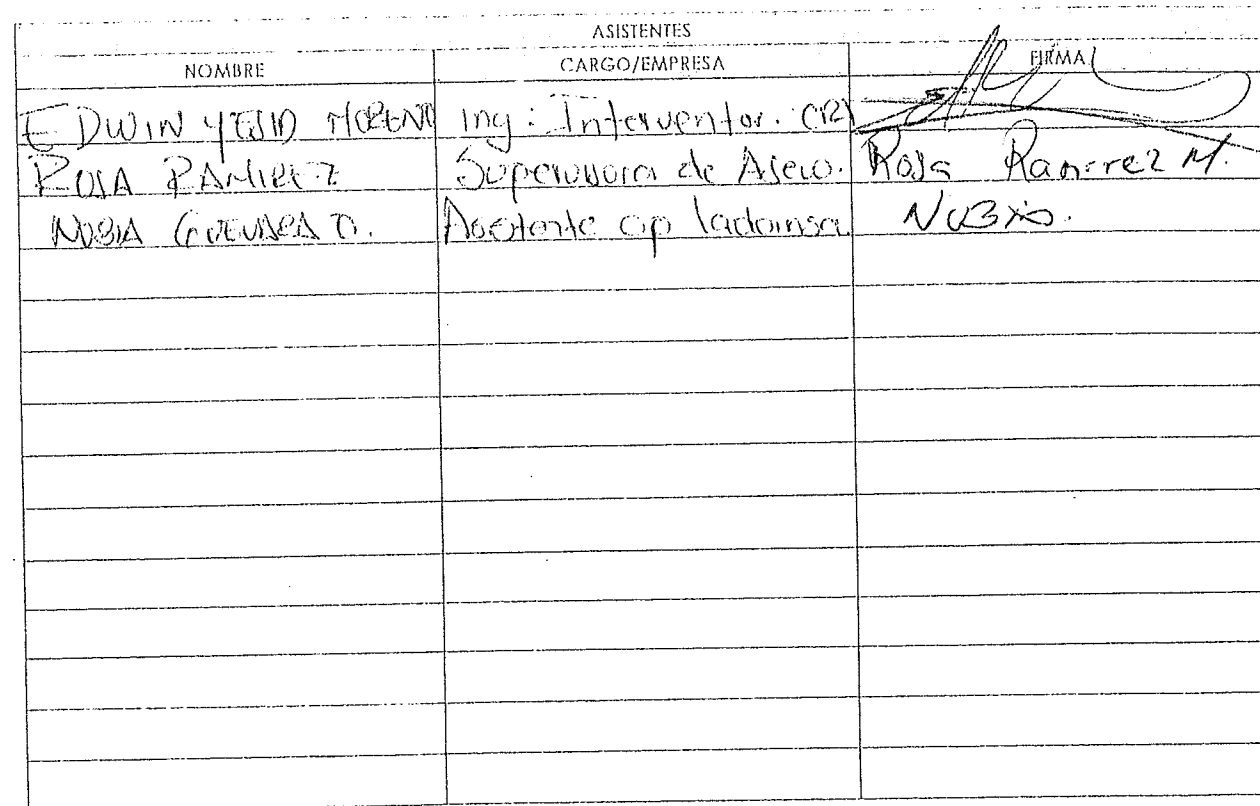 ASISTENTES
NOMBRE CARGO/EMPRESA FIRMA
EDWIN YESID MORENO Ing. Interventor.
ROSA RAMIREZ Supervisora de Aseo. Rosa Ramirez M.
NUBIA GUEVARA Asistente op ladoinsa NUBIA.